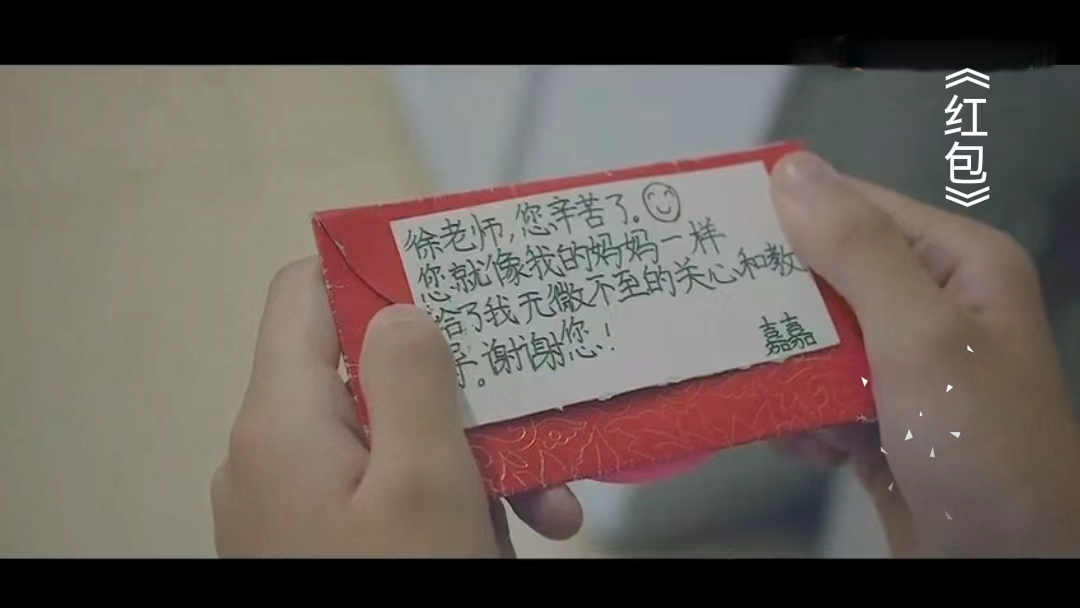 《红包》
徐老师,您辛苦了。
您就像我的妈妈一样
给了我无微不至的关心和教
导。谢谢您!
嘉嘉